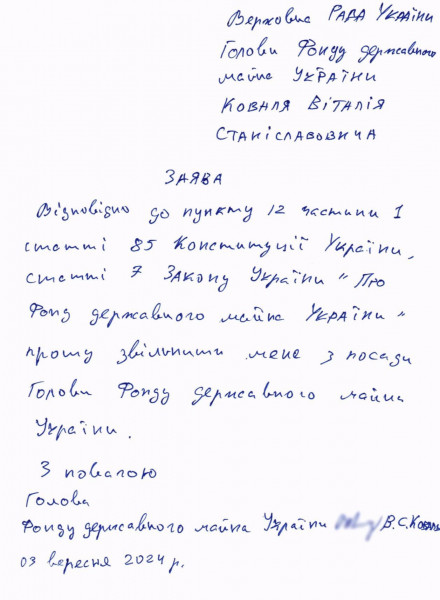 Верховна Рада України
Голови Фонду державного
майна України
Коваля Віталія
Станіславовича
Заява
Відповідно до пункту 12 частини 1
статті 85 Конституції України,
статті 7 Закону України "Про
Фонд державного майна України"
прошу звільнити мене з посади
Голови Фонду державного майна
України.
З повагою
Голова
Фонду державного майна України В.С. Коваль
03 вересня 2024 р.